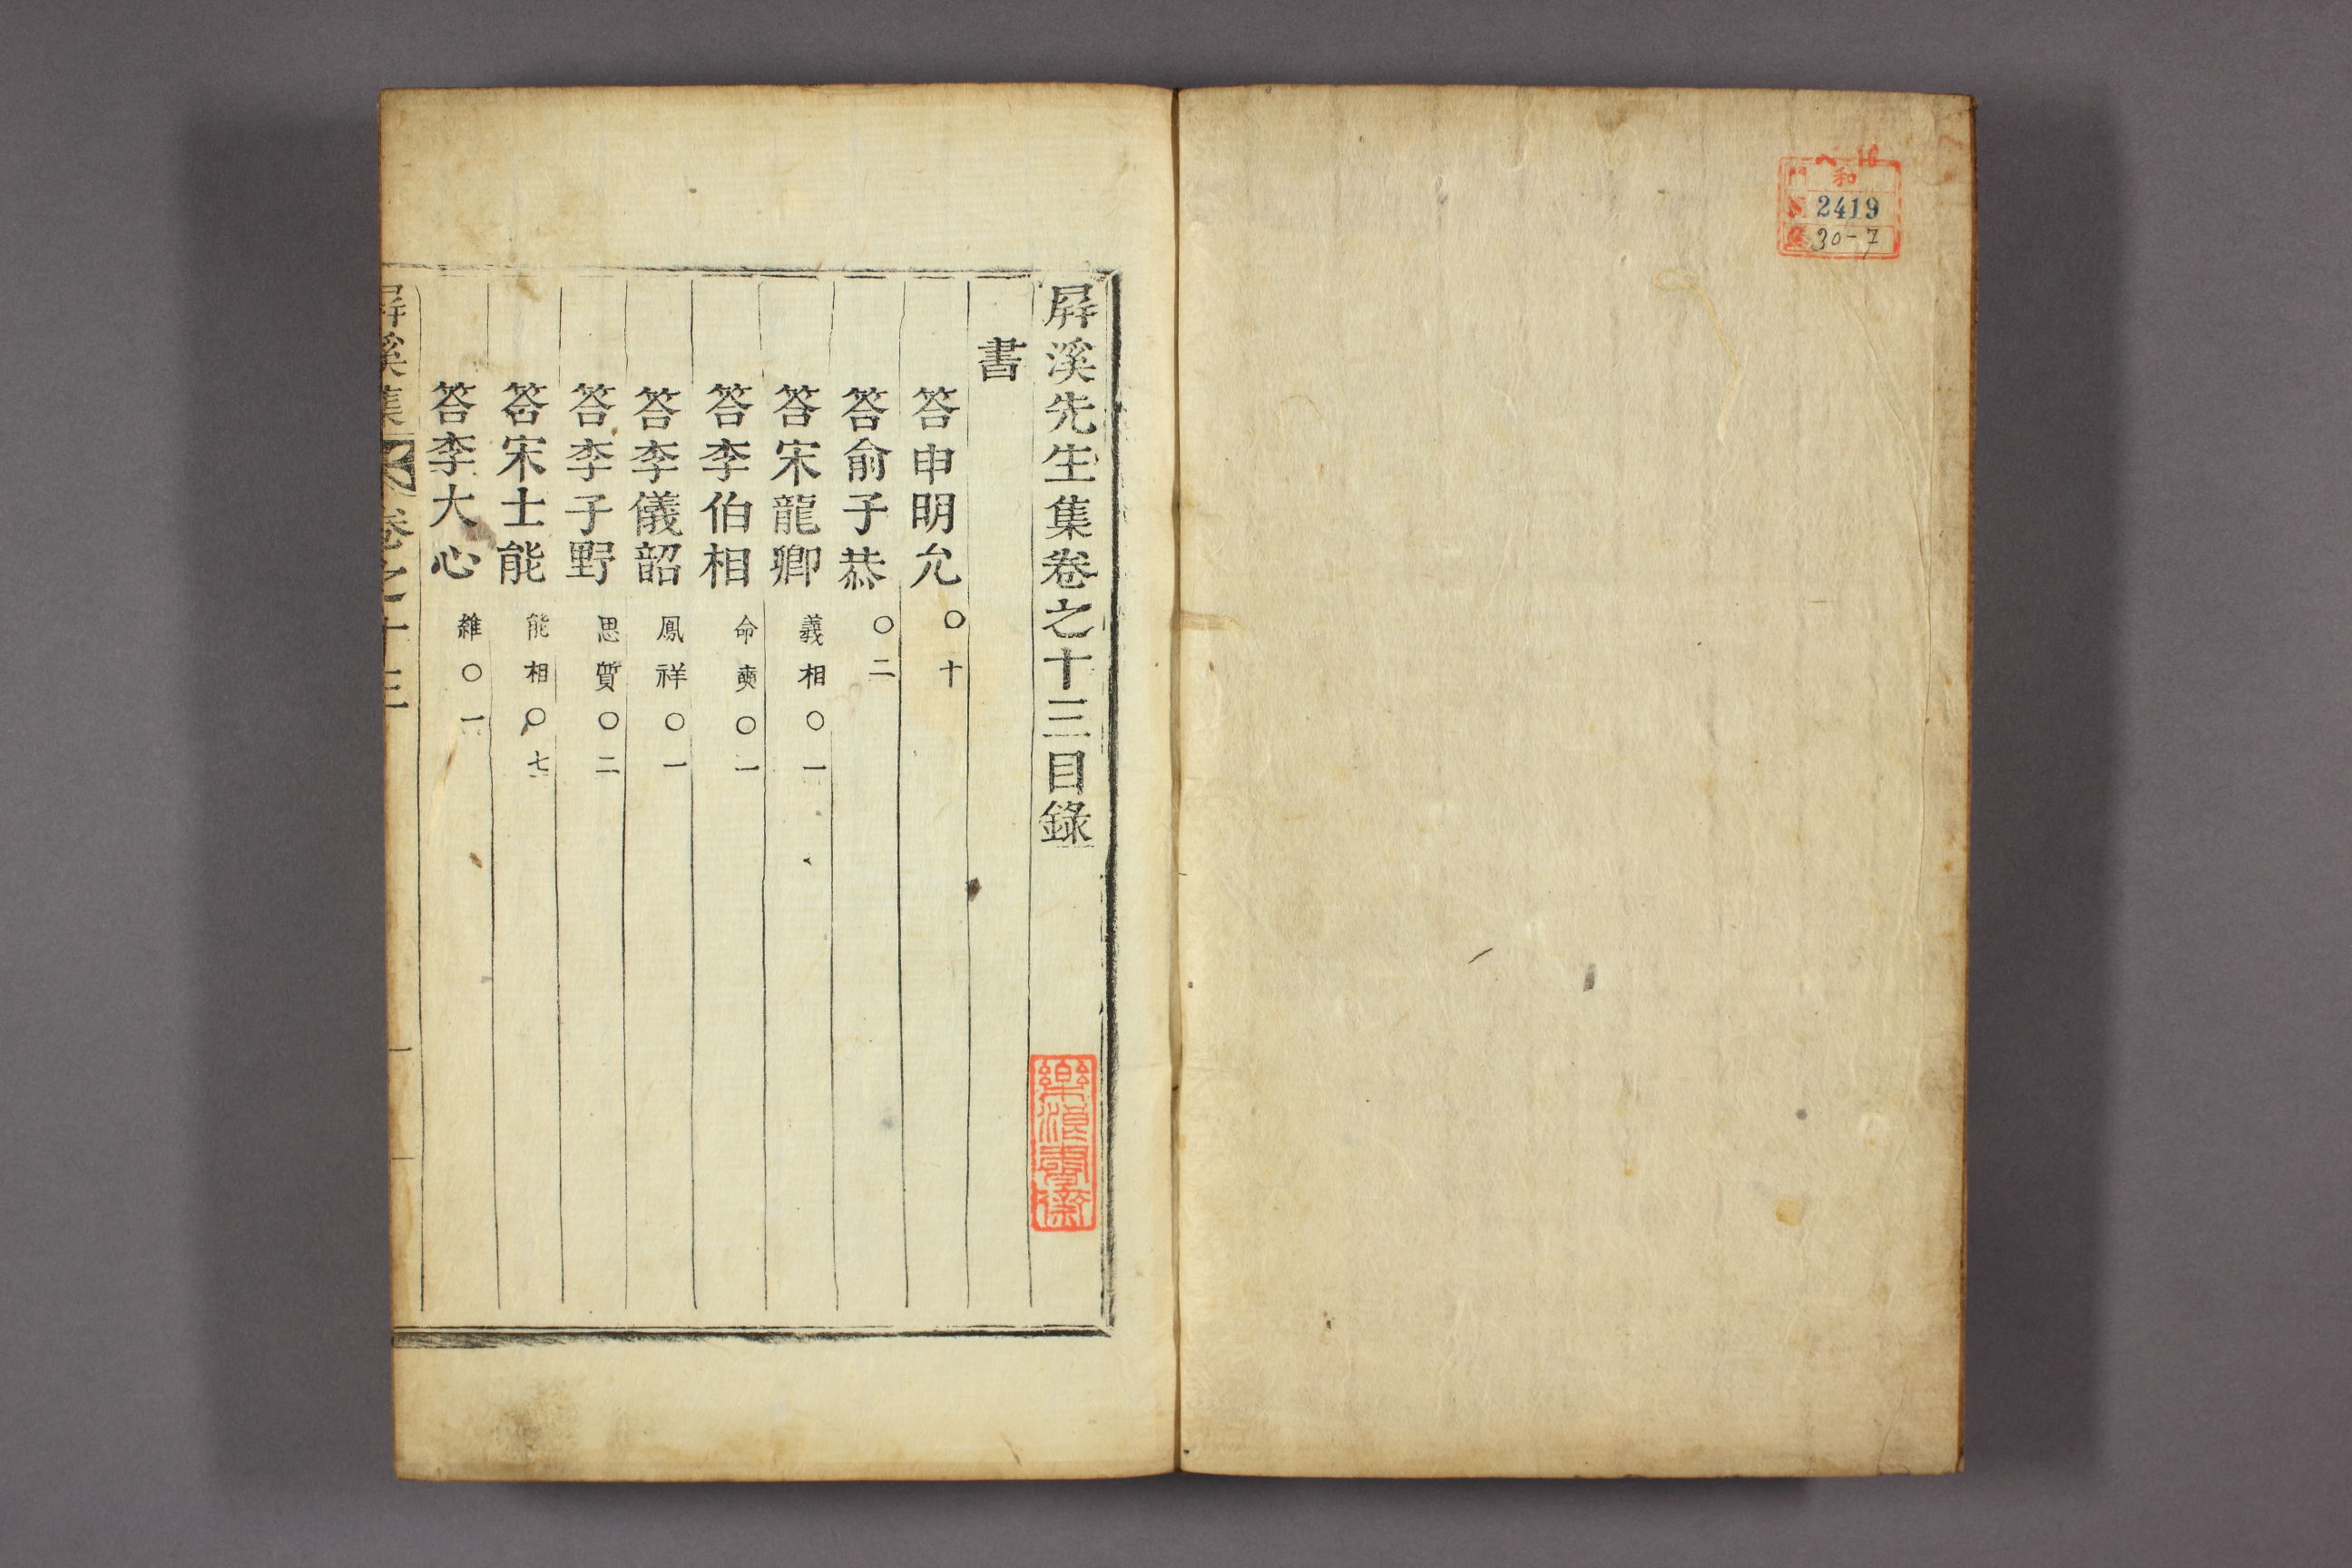 ヘ 16
門 和
號 2419
30-7
屛溪先生集卷之十三目錄
書
答申明允 ○十
答俞子恭 ○二
答宋龍卿 義相○一
答李伯相 命奭○一
答李儀韶 鳳祥○一
答李子野 思質○二
答宋士能 能相○七
答李大心 維○一
屛溪集 卷之十三 一
樂浪書齋